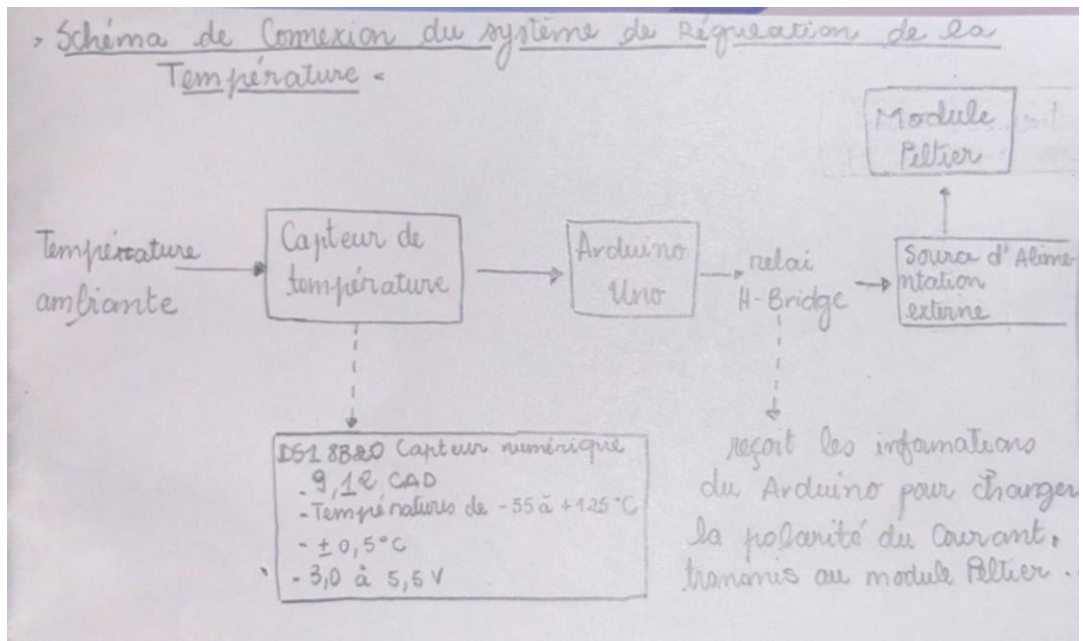 , Schéma de Connexion du système de Régulation de la
Température.
Module
Peltier
Température
ambiante
Capteur de
température
Arduino
Uno
relai
H-Bridge
Source d'Alime-
ntation
externe
DS18B20 Capteur numérique
. 9,12 CAD
- Températures de -55 à +125 °C
- ± 0,5 °C
- 3,0 à 5,5 V
reçoit les informations
du Arduino pour changer
la polarité du Courant.
transmis au module Peltier.